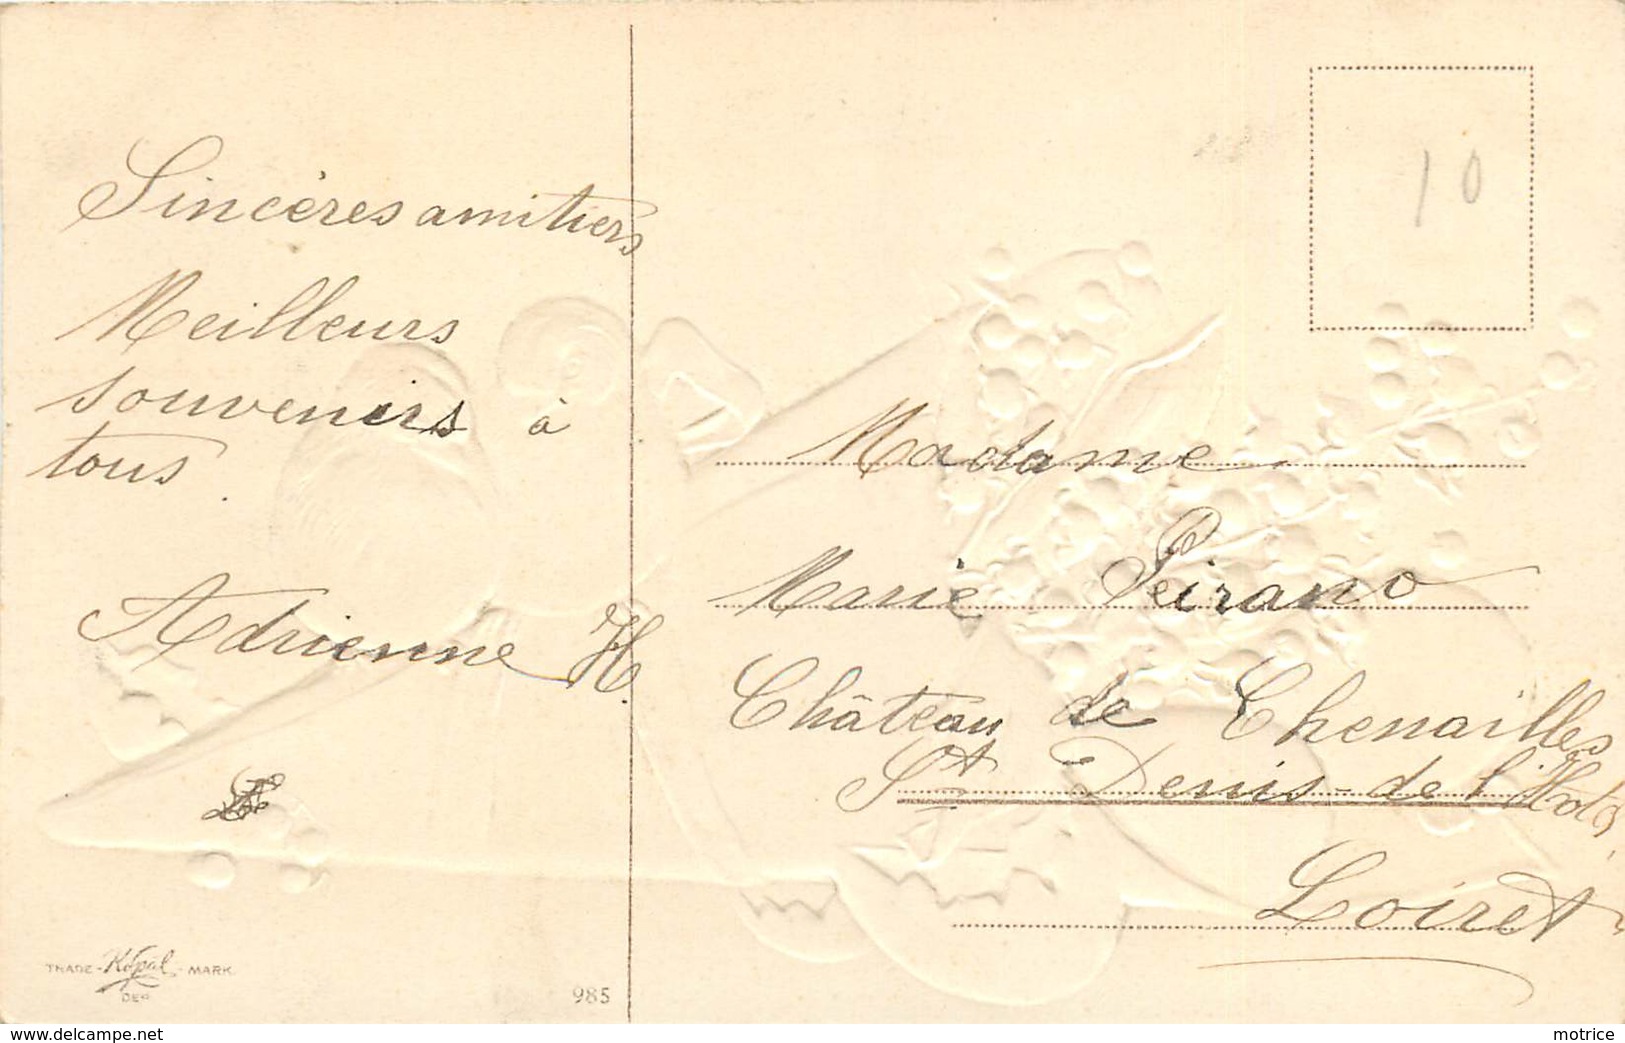 Sincères amitiers
Meilleurs
souvenirs à
tous.
Adrienne H.
10
Madame
Marie Peirano
Château de Chenailles
St Denis-de l'Hotel
Loiret
TRADE - Kopal - MARK.
DEP.
985
www.delcampe.net
motrice